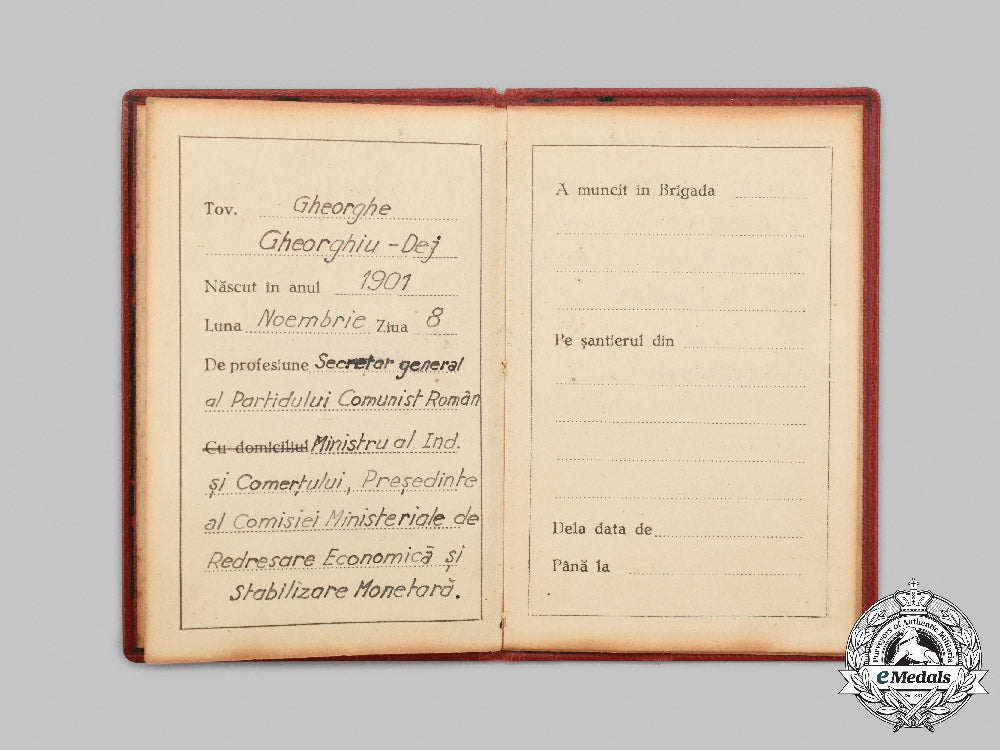 Tov. Gheorghe
Gheorghiu-Dej
Născut în anul 1901
Luna Noembrie Ziua 8
De profesiune Secretar general
al Partidului Comunist Român
Cu domiciliul Ministru al Ind.
și Comerțului, Președinte
al Comisiei Ministeriale de
Redresare Economică și
Stabilizare Monetară.
A muncit in Brigada
Pe șantierul din
Dela data de
Până la
Purveyors of Authentic Militaria
eMedals